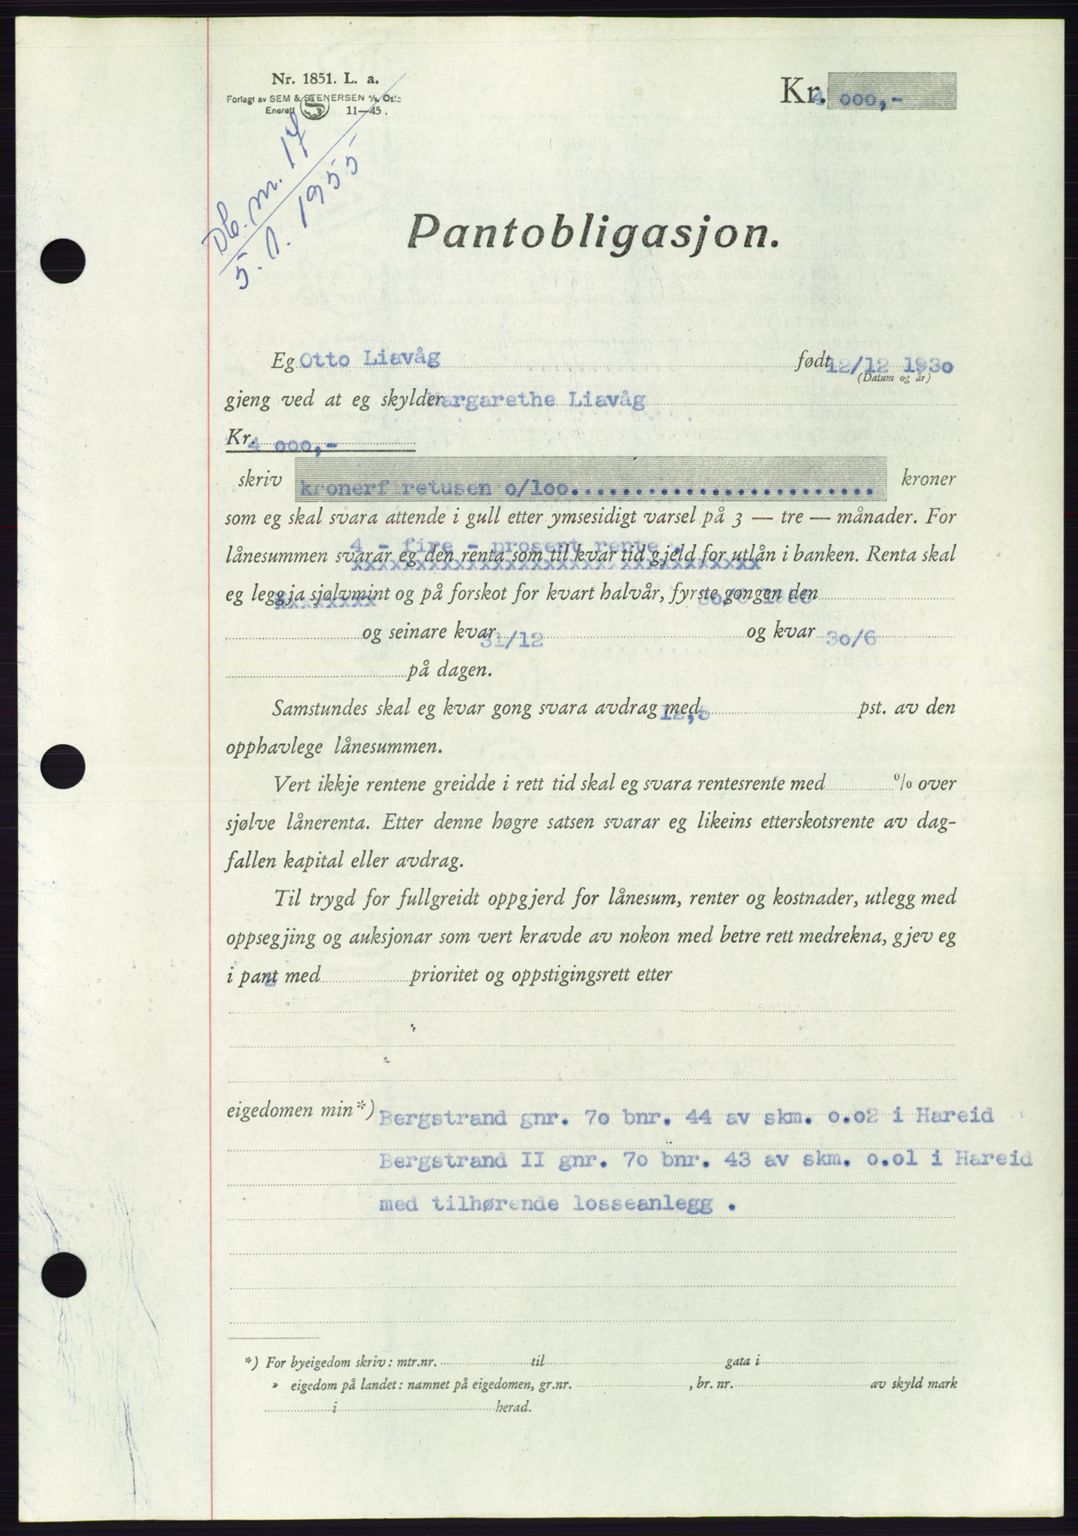 Nr. 1851. L. a.
Forlagt av SEM & STENERSEN A/S Oslo
Enerett S 11—45.
Kr. 4 000,-
Db. nr. 17
5. 1. 1955
Pantobligasjon.
Eg Otto Liavåg født 12/12 1930
(Datum og år)
gjeng ved at eg skylder Margarethe Liavåg
Kr. 4 000,-
skriv kronerf retusen 0/100........................ kroner
som eg skal svara attende i gull etter ymsesidigt varsel på 3 — tre — månader. For
4 - fire - prosent rente.
lånesummen svarar eg den renta som til kvar tid gjeld for utlån i banken. Renta skal
eg leggja sjølvmint og på forskot for kvart halvår, fyrste gongen den
og seinare kvar 31/12 og kvar 30/6
på dagen.
Samstundes skal eg kvar gong svara avdrag med 12,5 pst. av den
opphavlege lånesummen.
Vert ikkje rentene greidde i rett tid skal eg svara rentesrente med % over
sjølve lånerenta. Etter denne høgre satsen svarar eg likeins etterskotsrente av dag-
fallen kapital eller avdrag.
Til trygd for fullgreidt oppgjerd for lånesum, renter og kostnader, utlegg med
oppsegjing og auksjonar som vert kravde av nokon med betre rett medrekna, gjev eg
i pant med 2 prioritet og oppstigingsrett etter
eigedomen min*) Bergstrand gnr. 70 bnr. 44 av skm. 0.02 i Hareid
Bergstrand II gnr. 70 bnr. 43 av skm. 0.01 i Hareid
med tilhørende losseanlegg .
*) For byeigedom skriv: mtr.nr. til gata i
» eigedom på landet: namnet på eigedomen, gr.nr. , br. nr. av skyld mark
i herad.